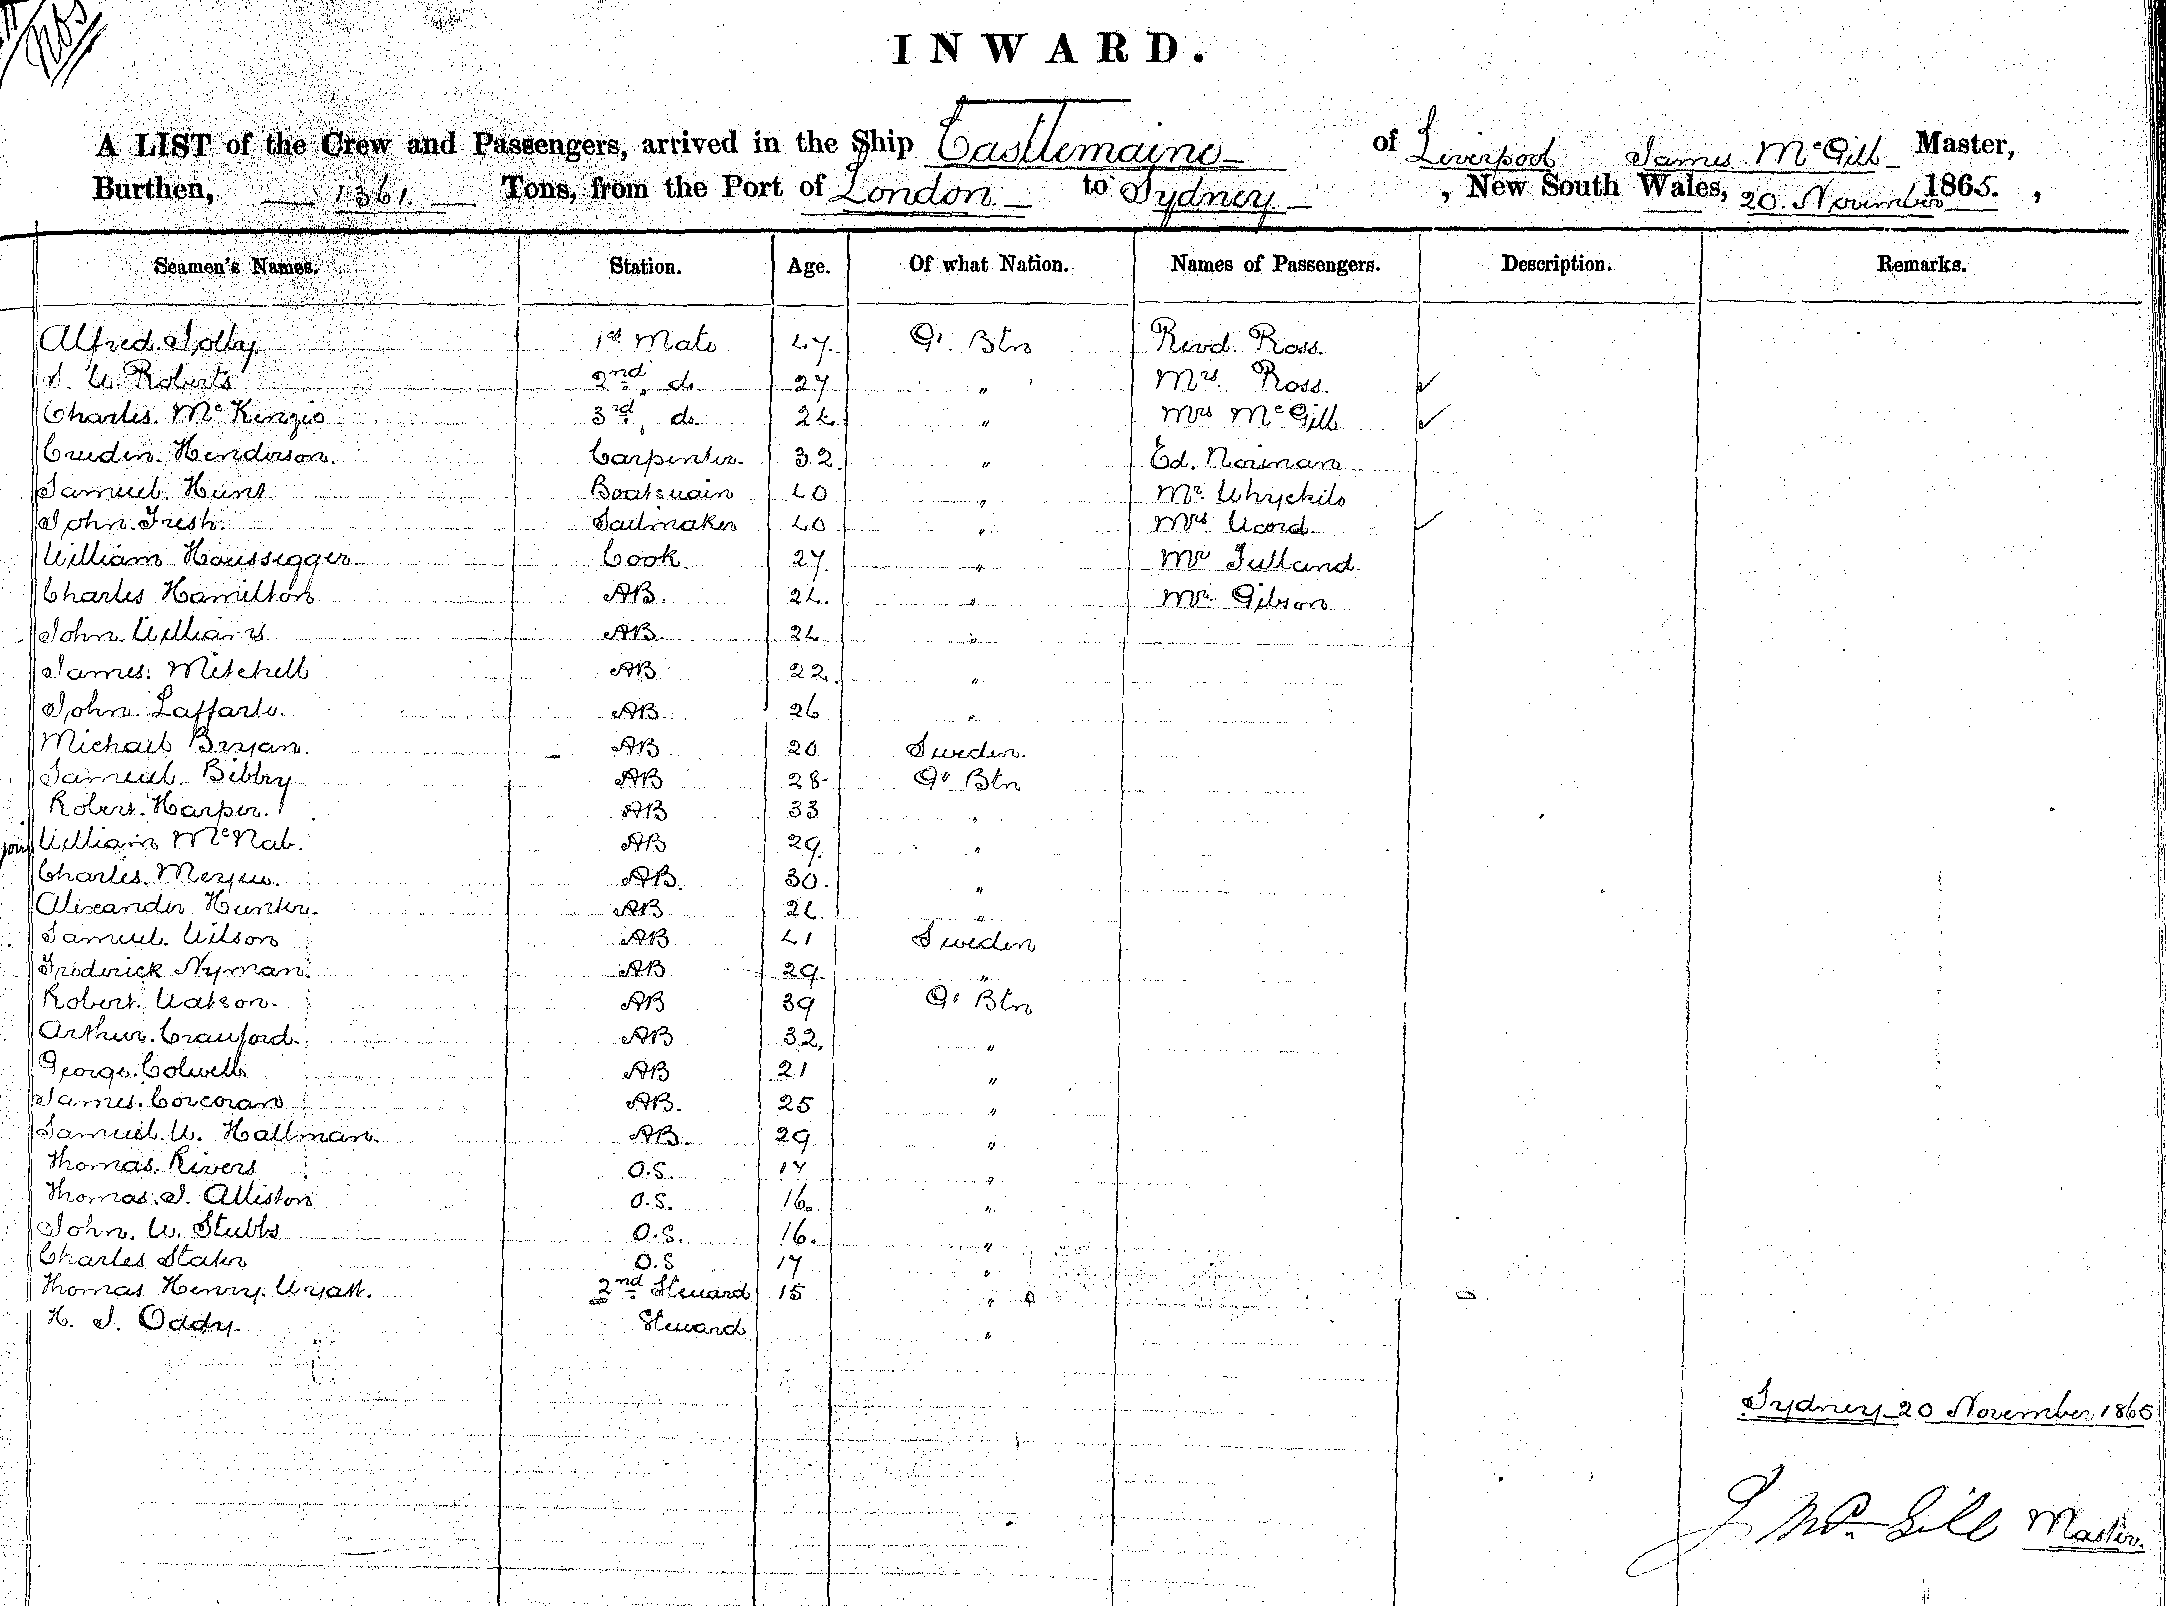 INWARD.
A LIST of the Crew and Passengers, arrived in the Ship Castlemaine of Liverpool James McGill Master,
Burthen, 1361. Tons, from the Port of London to Sydney, New South Wales, 20. November 1865.,
Seamen's Names. Station. Age. Of what Nation. Names of Passengers. Description. Remarks.
Alfred. Jolly. 1st Mate 47. Gt. Btn Revd. Ross.
W. Roberts 2nd, do 27 " Mrs. Ross. ✓
Charles. McKenzie 3rd, do. 24 " Mrs McGill ✓
Cruden. Henderson. Carpenter. 32. " Ed. Norman
Samuel. Hunt Boatswain 40 " Mr.
John. Fresh. Sailmaker 40 " Mrs Word. ✓
William Haussegger Cook. 27. " Mr Fulland
Charles Hamilton AB. 24. " Mr. Gibson
John. Williams AB. 24 "
James. Mitchell AB 22. "
John. AB 26 "
Michael Bryan. AB 20 Sweden.
Samuel. Bibby AB 28. Gt Btn
Robert. Harper. AB 33 "
William McNab. AB 29. "
Charles. AB. 30. "
Alexander Hunter. AB 24. "
Samuel. Wilson AB 41 Sweden
Frederick Nyman. AB 29. "
Robert. Watson. AB 39 Gt Btn
Arthur. Crauford. AB 32. "
George. Colwell AB 21 "
James. Corcoran AB. 25 "
Samuel. W. Hallman. AB. 29 "
Thomas. Rivers O.S. 17 "
Thomas. J. Alliston O.S. 16. "
John. W. Stubbs O.S. 16. "
Charles Slater O.S 17 "
Thomas Henry. Wyatt. 2nd Steward 15 "
H. J. Oddy. Steward "
Sydney 20 November 1865
J McGill Master.